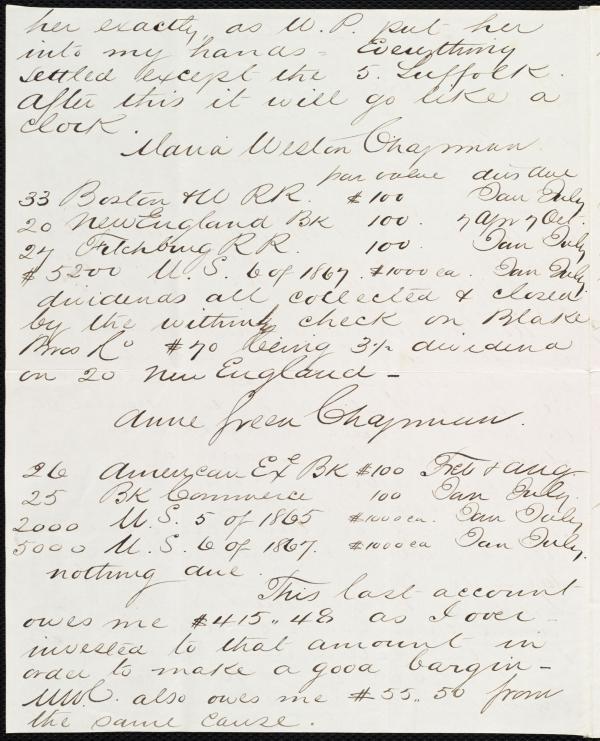 her exactly as W. P. put her
into my hands - Everything
settled except the 5. Suffolk.
After this it will go like a
clock.
Maria Weston Chapman.
par value divs due
33 Boston & W RR. $100 Jan July
20 New England Bk 100. 7 Apr 7 Oct.
27 Fitchburg RR. 100. Jan July
$5200 U. S. 6 of 1867. $1000 ea. Jan July
dividends all collected & closed
by the within check on Blake
Bros & Co $70 being 3½ dividend
on 20 New England -
Anne Green Chapman.
26 American Exe Bk $100 Feb & Aug
25 Bk Commerce 100 Jan July.
2000 U. S. 5 of 1865 $1000 ea. Jan July
5000 U. S. 6 of 1867. $1000 ea Jan July.
nothing due.
This last account
owes me $415.. 48 as I over
invested to that amount in
order to make a good bargin -
MWC. also owes me $55.. 50 from
the same cause.